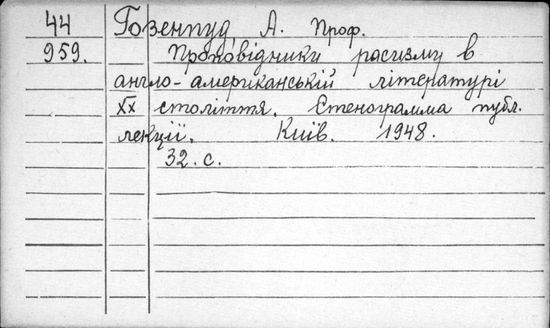 44 Гозенпуд А. Проф.
959. Проповідники расизму в
англо-американській літературі
XX століття. Стенограмма публ.
лекції. Київ. 1948.
32. с.